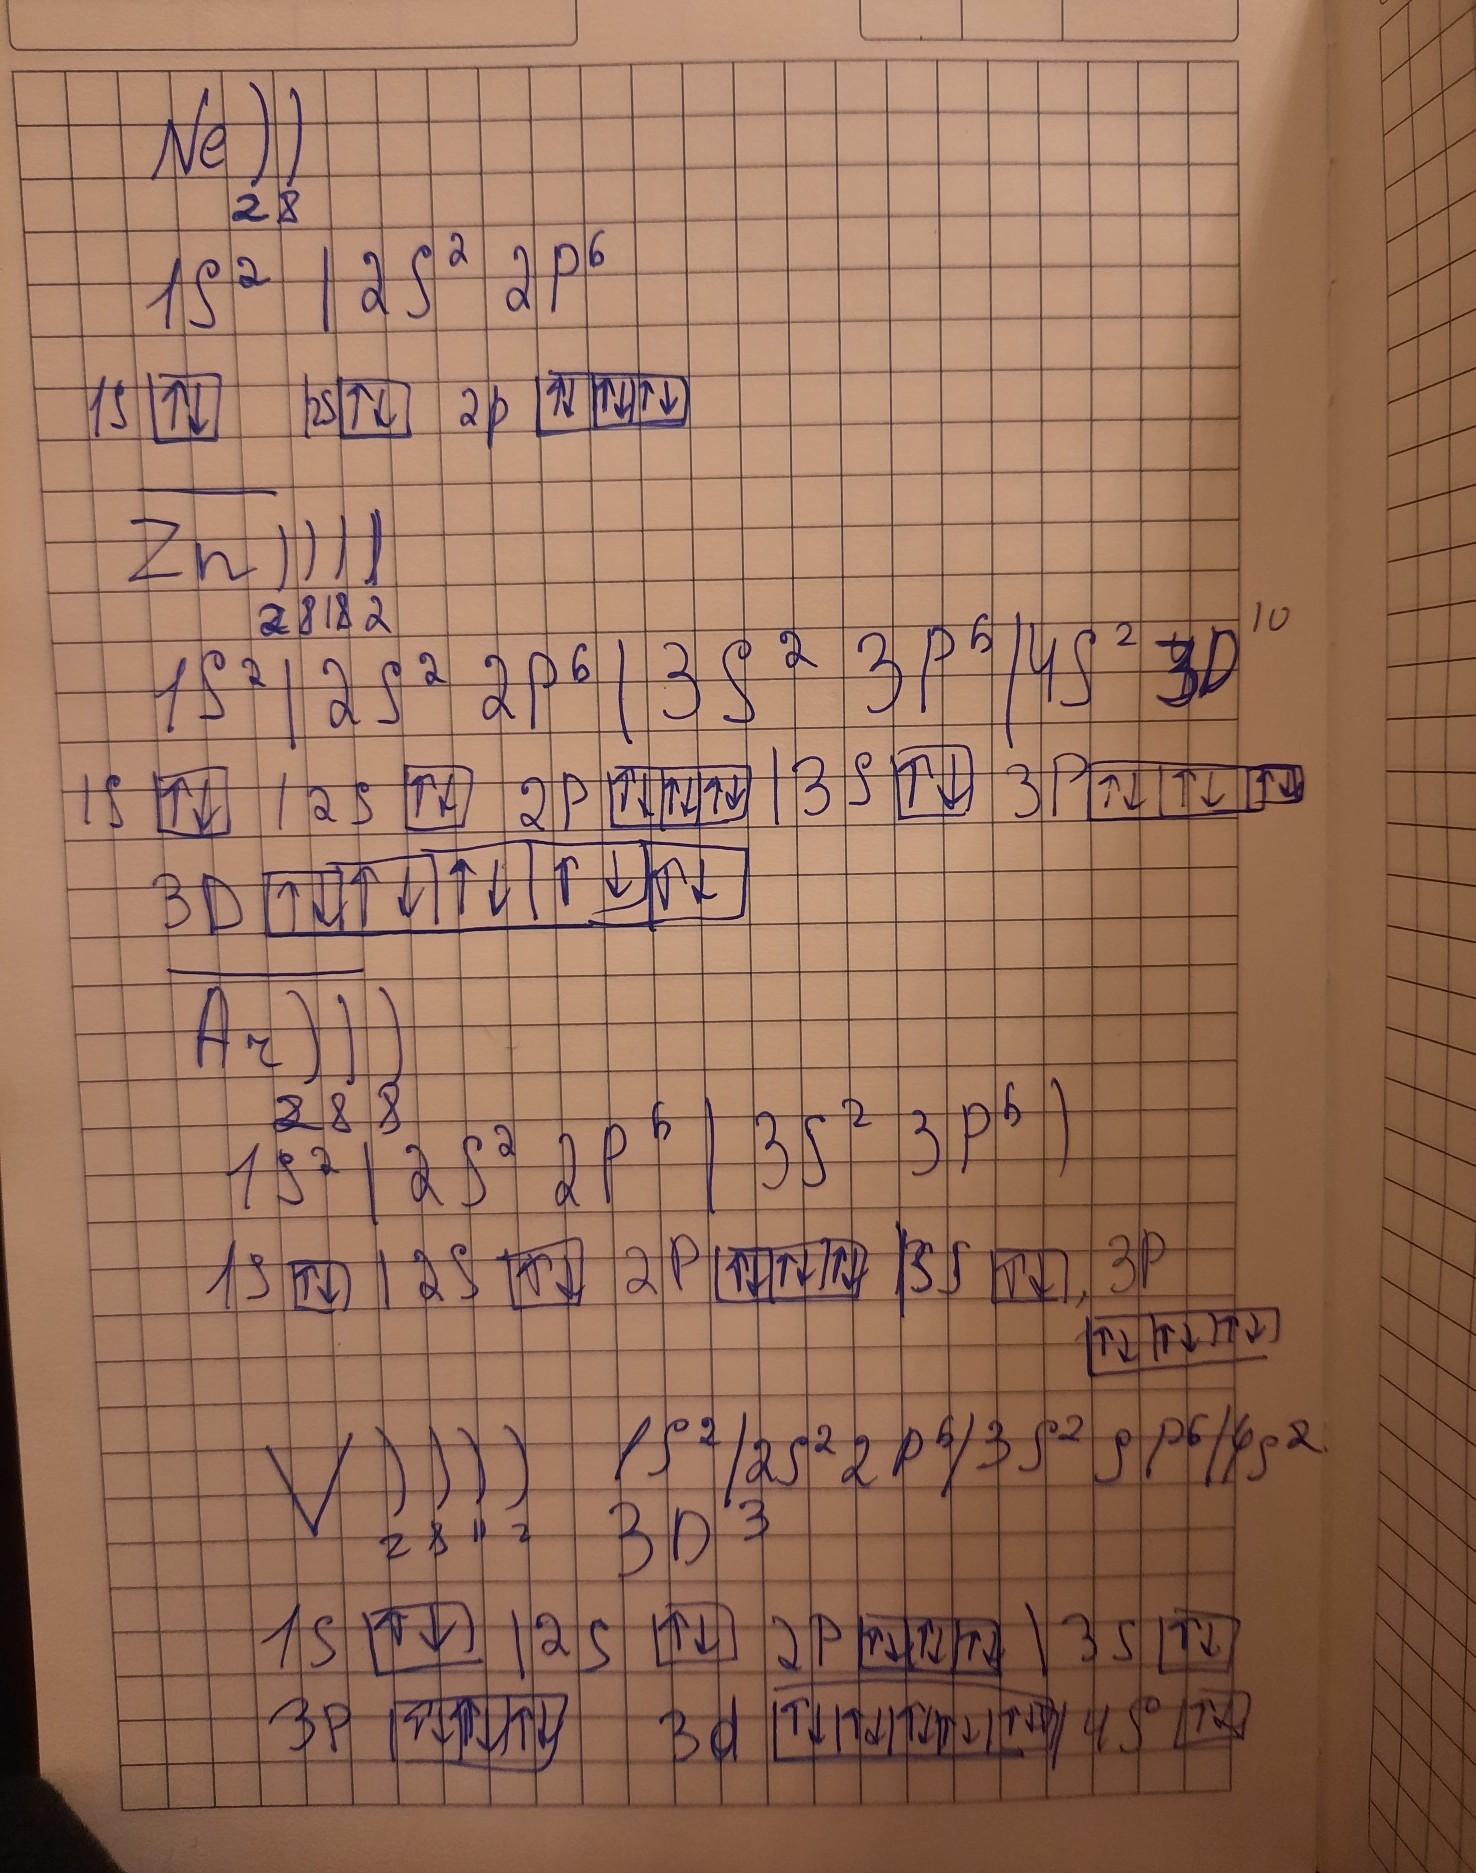 Ne ) )
2 8
1S² | 2S² 2P⁶
1S ↑↓ 2S ↑↓ 2p ↑↓ ↑↓ ↑↓
Zn ) ) ) )
2 8 18 2
1S² | 2S² 2P⁶ | 3S² 3P⁶ | 4S² 3D¹⁰
1S ↑↓ | 2S ↑↓ 2P ↑↓ ↑↓ ↑↓ | 3S ↑↓ 3P ↑↓ ↑↓ ↑↓
3D ↑↓ ↑↓ ↑↓ ↑↓ ↑↓
Ar ) ) )
2 8 8
1S² | 2S² 2P⁶ | 3S² 3P⁶ )
1S ↑↓ | 2S ↑↓ 2P ↑↓ ↑↓ ↑↓ | 3S ↑↓, 3P
↑↓ ↑↓ ↑↓
V ) ) ) ) 1S² / 2S² 2P⁶ / 3S² 3P⁶ / 4S²
2 8 11 2 3D³
1S ↑↓ | 2S ↑↓ 2P ↑↓ ↑↓ ↑↓ | 3S ↑↓
3P ↑↓ ↑↓ ↑↓ 3d ↑↓ ↑↓ ↑↓ ↑↓ ↑↓ / 4S ↑↓